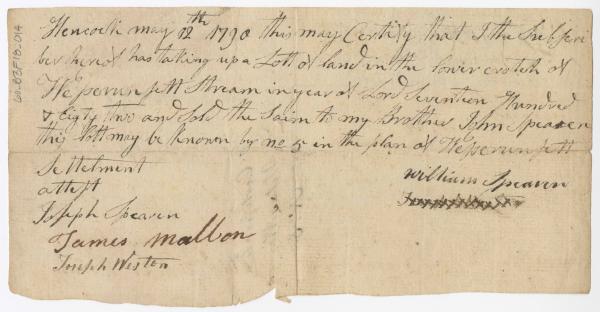 Hencock may 12th 1790 this may Certify that I the Subscri
ber hereof has taking up a Lott of land in the lower crotch of
Wesserunsett Stream in year of Lord Seventeen Hundred
& Eighty two and Sold the Saim to my Brother John Spearen
this lott may be Known by no 5 in the plan of Wesserunsett
Settelment
attest
William Spearen
Joseph Spearen
James Mallon
Joseph Weston
60.83F18.014